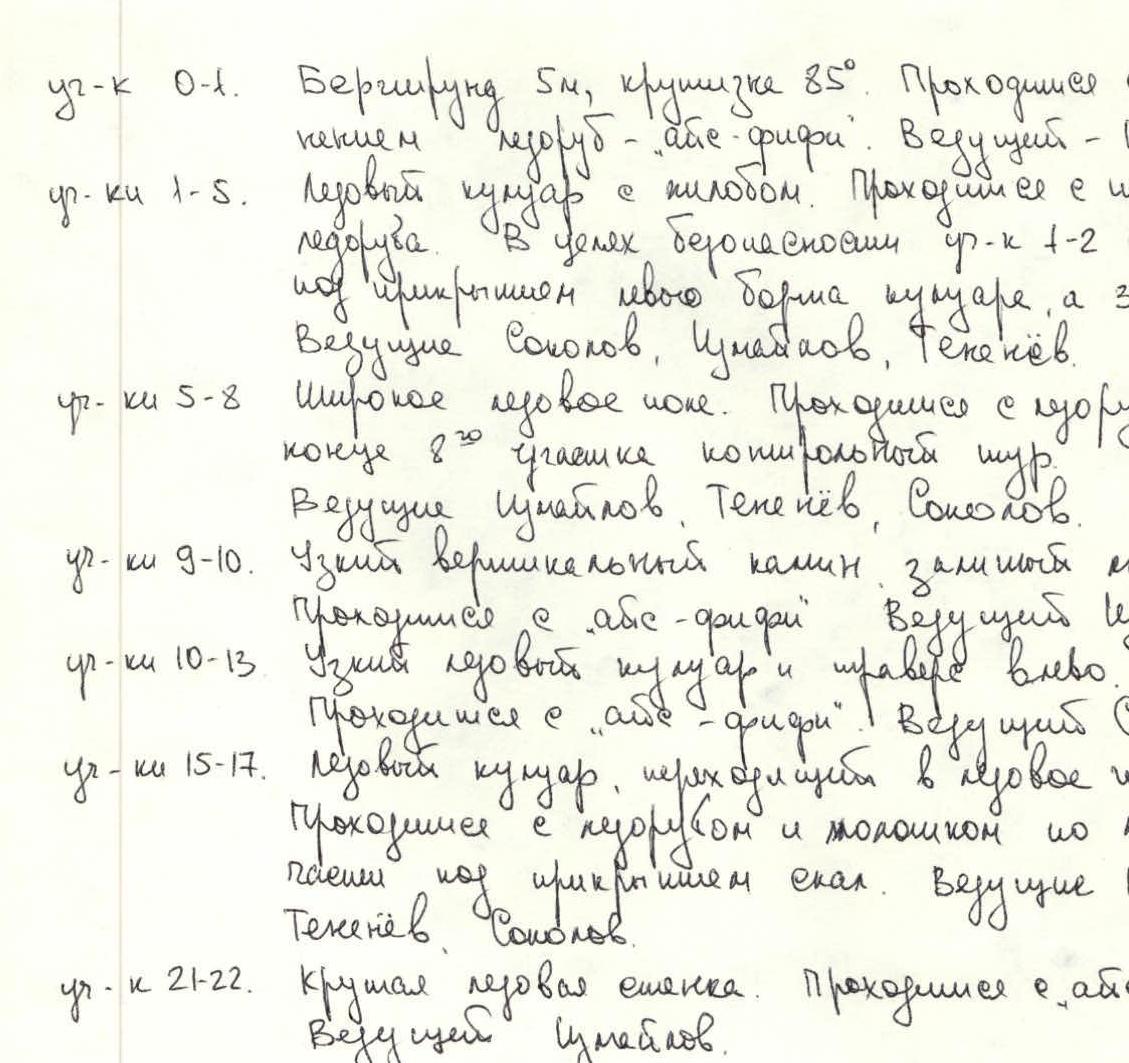 уч-к 0-1. Бергшрунд 5м, крутизна 85°. Проходится с
нением ледоруб - „айс-фифи". Ведущий -
уч-ки 1-5. Ледовый кулуар с жилобом. Проходится с
ледоруба. В целях безопасности уч-к 1-2
под прикрытием левого борта кулуара, а з
Ведущие Соколов, Измайлов, Тененёв.
уч-ки 5-8 Широкое ледовое поле. Проходится с ледору
конце 8го участка контрольный тур.
Ведущие Измайлов, Тененёв, Соколов.
уч-ки 9-10. Узкий вертикальный камин, залитый
Проходится с „айс-фифи" Ведущий Из
уч-ки 10-13. Узкий ледовый кулуар и траверс влево.
Проходится с „айс-фифи". Ведущий С
уч-ки 15-17. Ледовый кулуар, переходящий в ледовое п
Проходится с ледорубом и молотком по
части под прикрытием скал. Ведущие
Тененёв, Соколов.
уч-к 21-22. Крутая ледовая стенка. Проходится с „айс
Ведущий Измайлов.